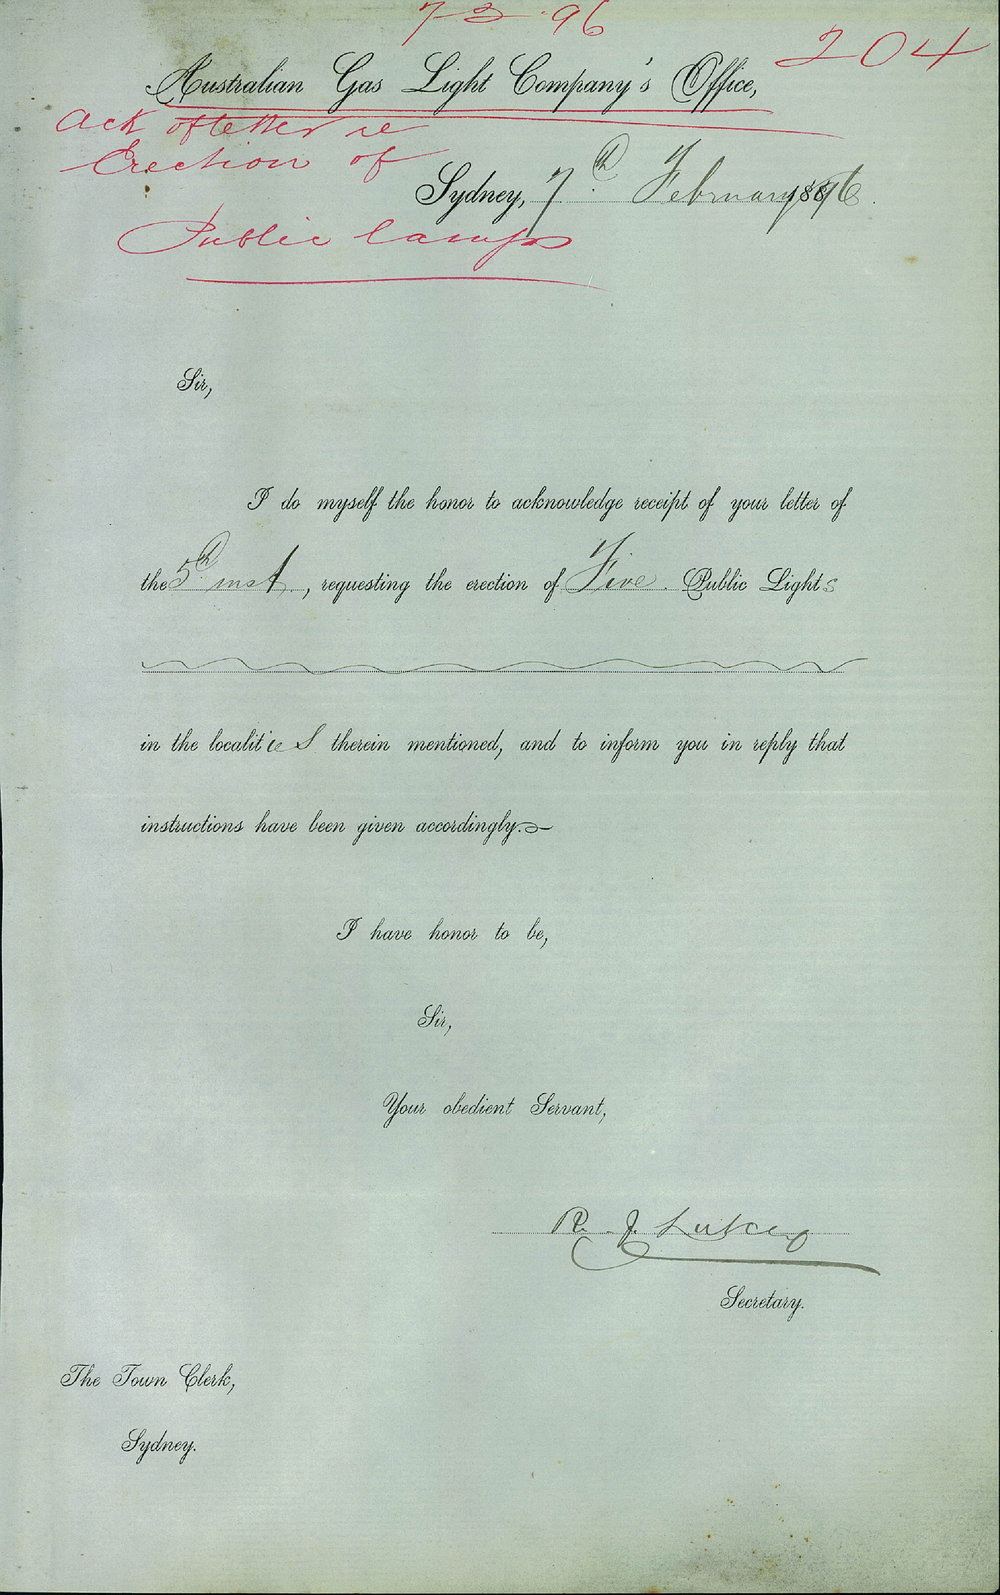 7 2 96
204
Australian Gas Light Company's Office,
Ack of letter re
Erection of
Sydney, 7th February 1896
Public lamps
Sir,
I do myself the honor to acknowledge receipt of your letter of
the 5th inst, requesting the erection of Five Public Lights
in the localities therein mentioned, and to inform you in reply that
instructions have been given accordingly.
I have honor to be,
Sir,
Your obedient Servant,
R. J. Lukey
Secretary.
The Town Clerk,
Sydney.